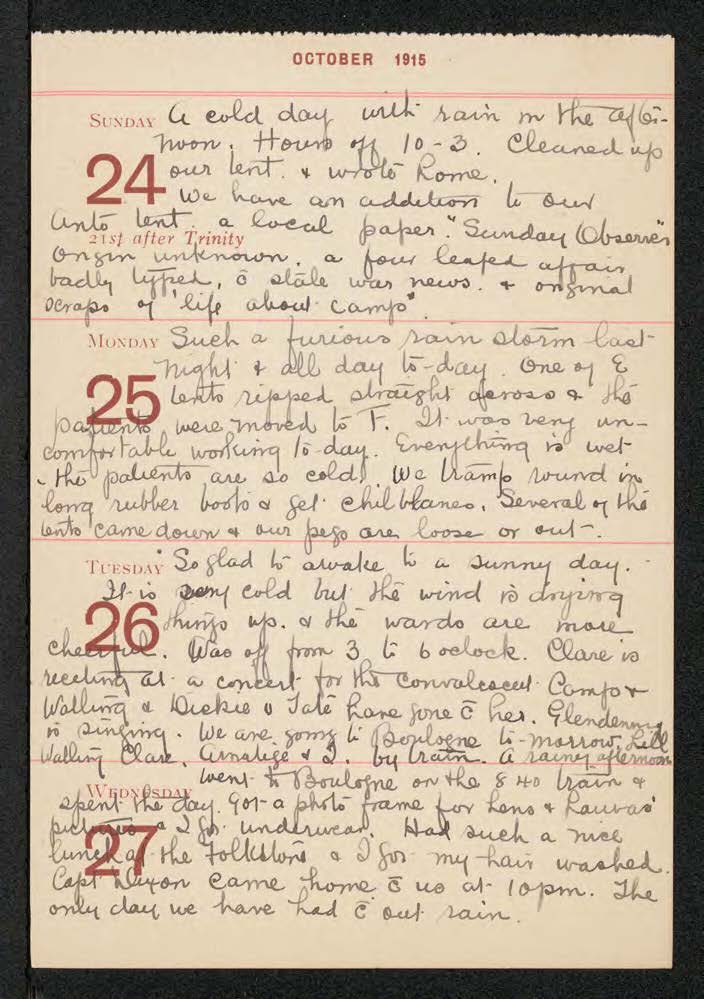 OCTOBER 1915
SUNDAY A cold day with rain in the after-
noon. Hours off 10-3. Cleaned up
24 our tent. & wrote home.
We have an addition to our
tent. a local paper "Sunday Observer"
21st after Trinity
origin unknown. a four leafed affair
badly typed, c̄ stale war news. & original
scraps of "life about camp"
MONDAY Such a furious rain storm last
night & all day to-day. One of E
25 tents ripped straight across & the
patients were moved to F. It was very un-
comfortable working to-day. Everything is wet
& the patients are so cold. We tramp round in
long rubber boots & get chilblanes. Several of the
tents came down & our pegs are loose or out.
TUESDAY So glad to awake to a sunny day.
It is very cold but the wind is drying
26 things up. & the wards are more
cheerful. Was off from 3 to 6 oclock. Clare is
reciting at a concert for the Convalescent Camp &
Walling & Dickie & Tate have gone c̄ her. Glendenning
is singing. We are going to Boulogne to-morrow, Hill
Walling Clare, & I. by train. A rainy afternoon
WEDNESDAY went to Boulogne on the 8 40 train &
spent the day. Got a photo frame for Lens & Lauras'
pictures & I got underwear. Had such a nice
27 lunch at the Folkstone & I got my hair washed.
Capt Dixon came home c̄ us at 10pm. The
only day we have had c̄ out rain.